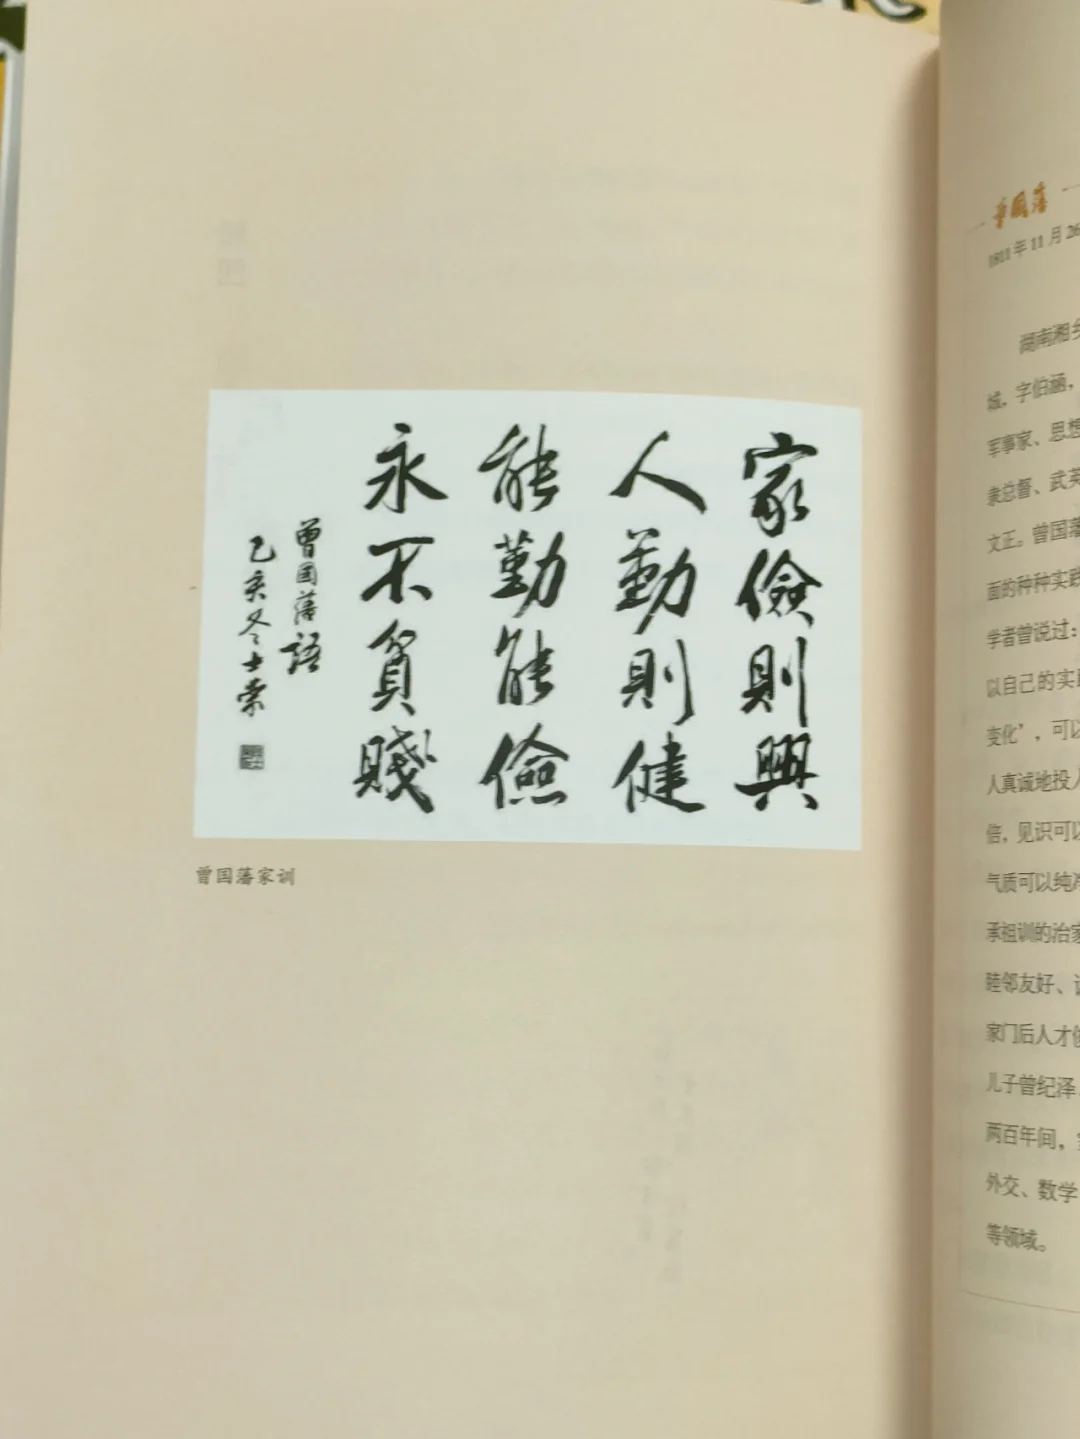 家儉則興
人勤則健
能勤能儉
永不貧賤
曾國藩語
乙亥冬士索
曾国藩家训
曾国藩
1811年11月26
湖南湘乡
城，字伯涵，
军事家、思想
隶总督、武英
文正。曾国藩
面的种种实践
学者曾说过：
以自己的实践
变化’，可以
人真诚地投入
倍，见识可以
气质可以纯净
承祖训的治家
睦邻友好、
家门后人才
儿子曾纪泽
两百年间，
外交、数学
等领域。